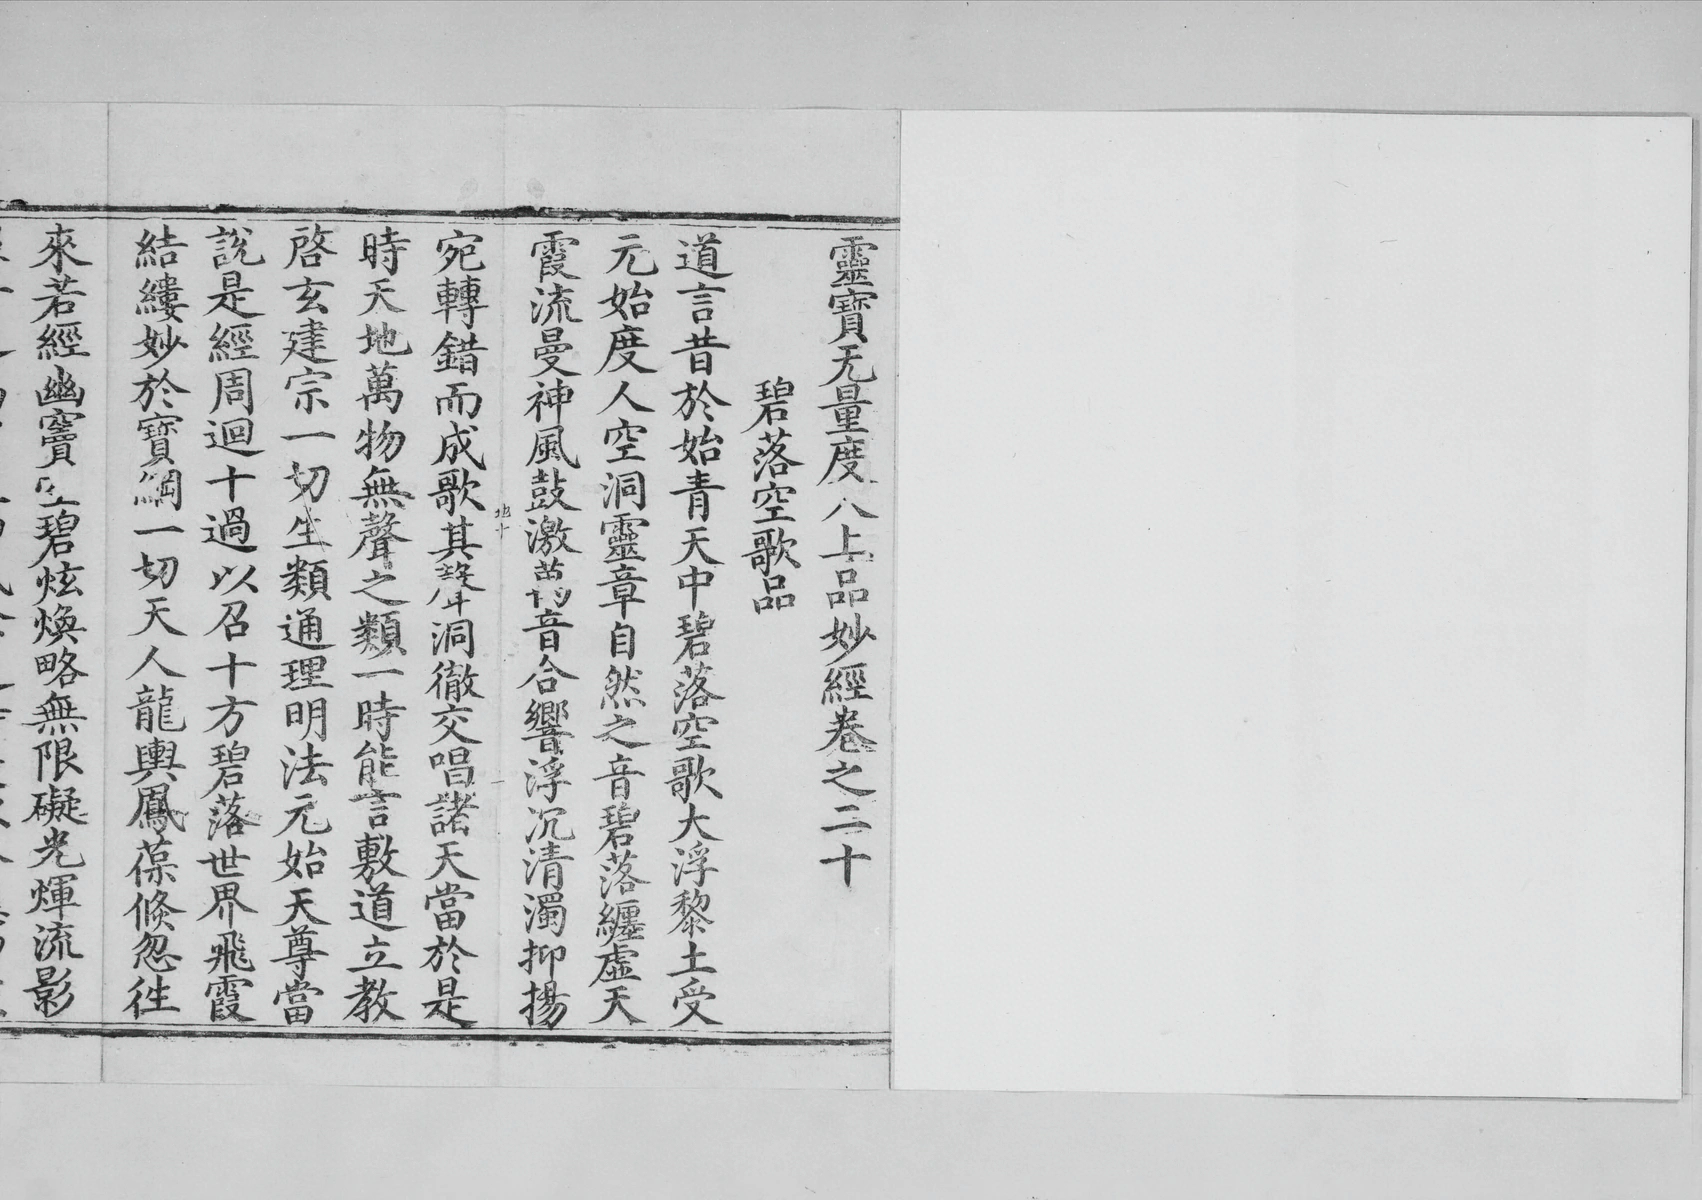 靈寶无量度人上品妙經卷之二十
碧落空歌品
道言昔於始青天中碧落空歌大浮黎土受
元始度人空洞靈章自然之音碧落纏虛天
霞流曼神風鼓激萬音合響浮沉清濁抑揚
地十
一
宛轉錯而成歌其聲洞徹交唱諸天當於是
時天地萬物無聲之類一時能言敷道立教
啓玄建宗一切生類通理明法元始天尊當
說是經周迴十過以召十方碧落世界飛霞
結縷妙於寶綱一切天人龍輿鳳葆倏忽徃
來若經幽竇空碧炫煥略無限礙光煇流影